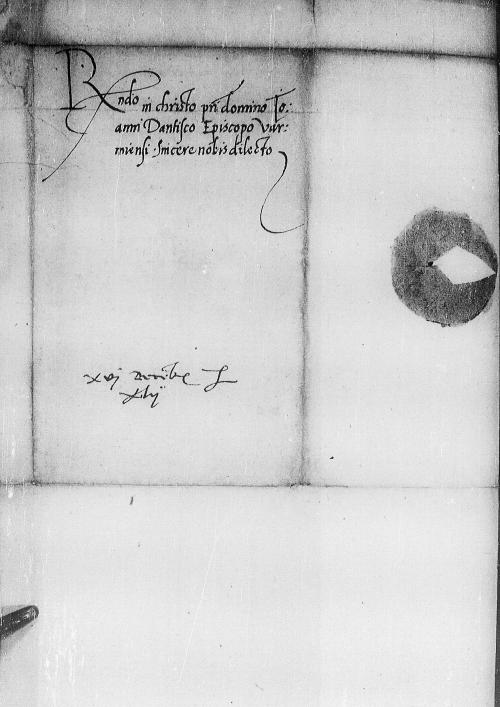 Rndo in christo pri domino Jo:
anni Dantisco Episcopo Var:
miensi sincere nobis dilecto
xvj
xlij